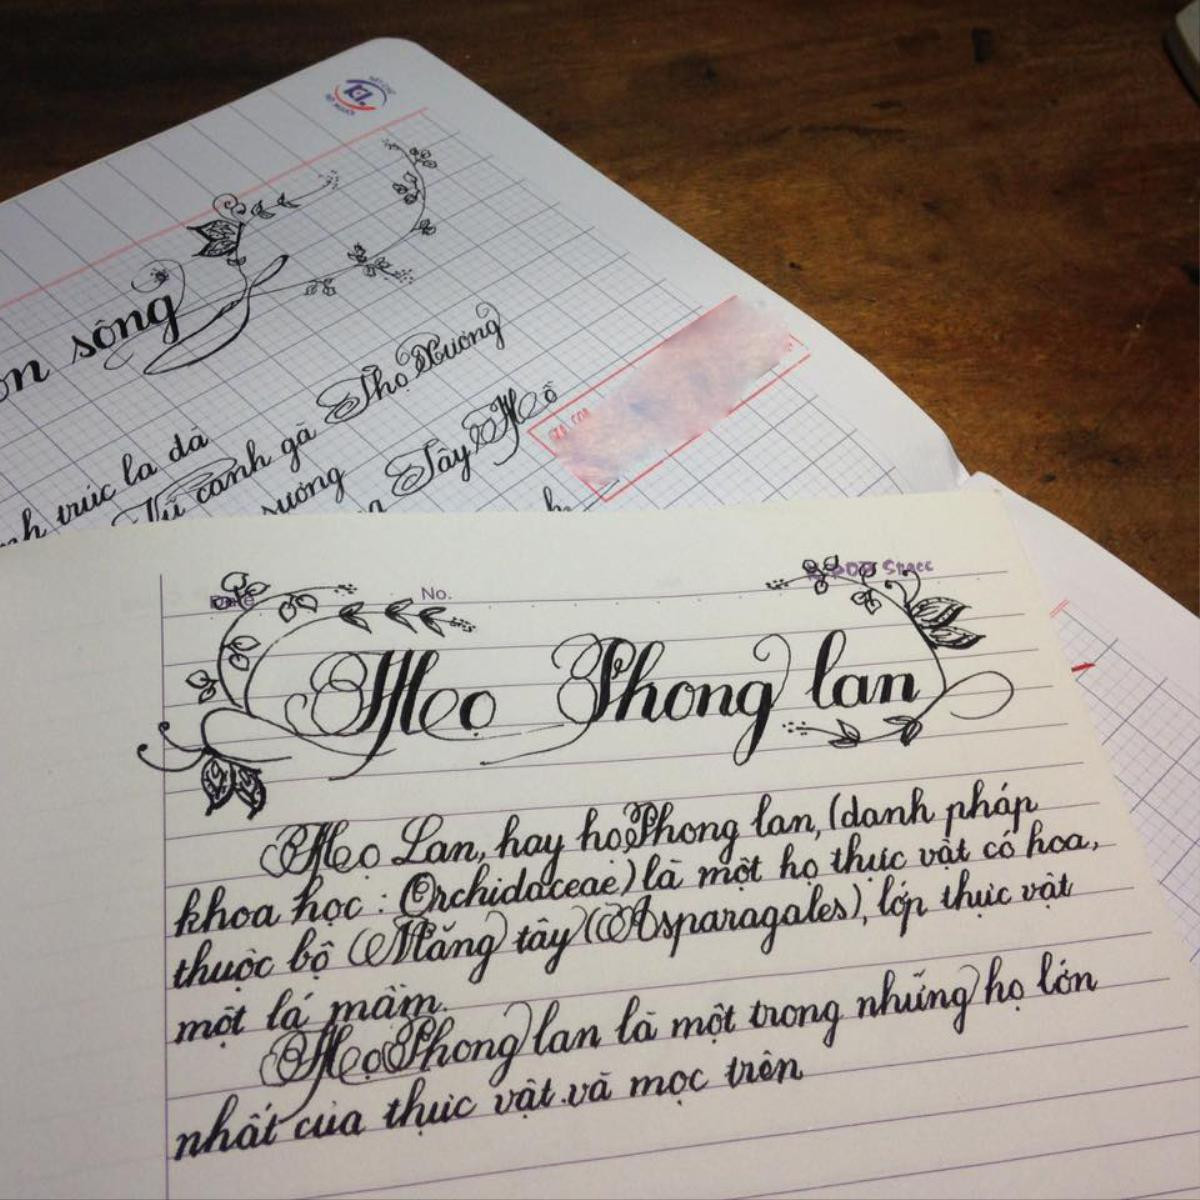 ôn sông
nh trúc la đà
Thọ Xương
canh gà
sương
Tây Hồ
Date
No.
Họ Phong lan
Họ Lan, hay họ Phong lan, (danh pháp
khoa học: Orchidaceae) là một họ thực vật có hoa,
thuộc bộ Măng tây (Asparagales), lớp thực vật
một lá mầm.
Họ Phong lan là một trong những họ lớn
nhất của thực vật. và mọc trên